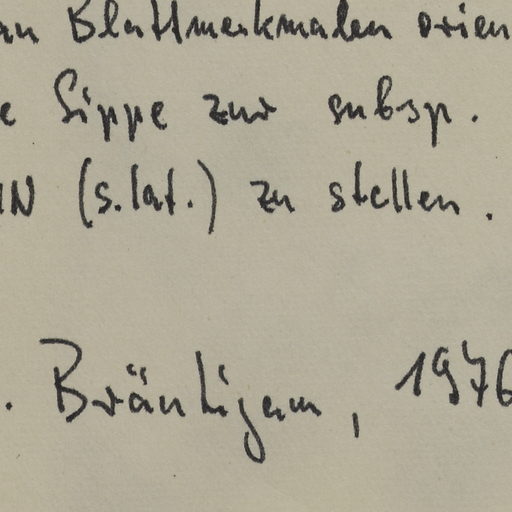 an Blattmerkmalen orien
e Sippe zur subsp.
N (s.lat.) zu stellen.
. Bräutigam, 1976